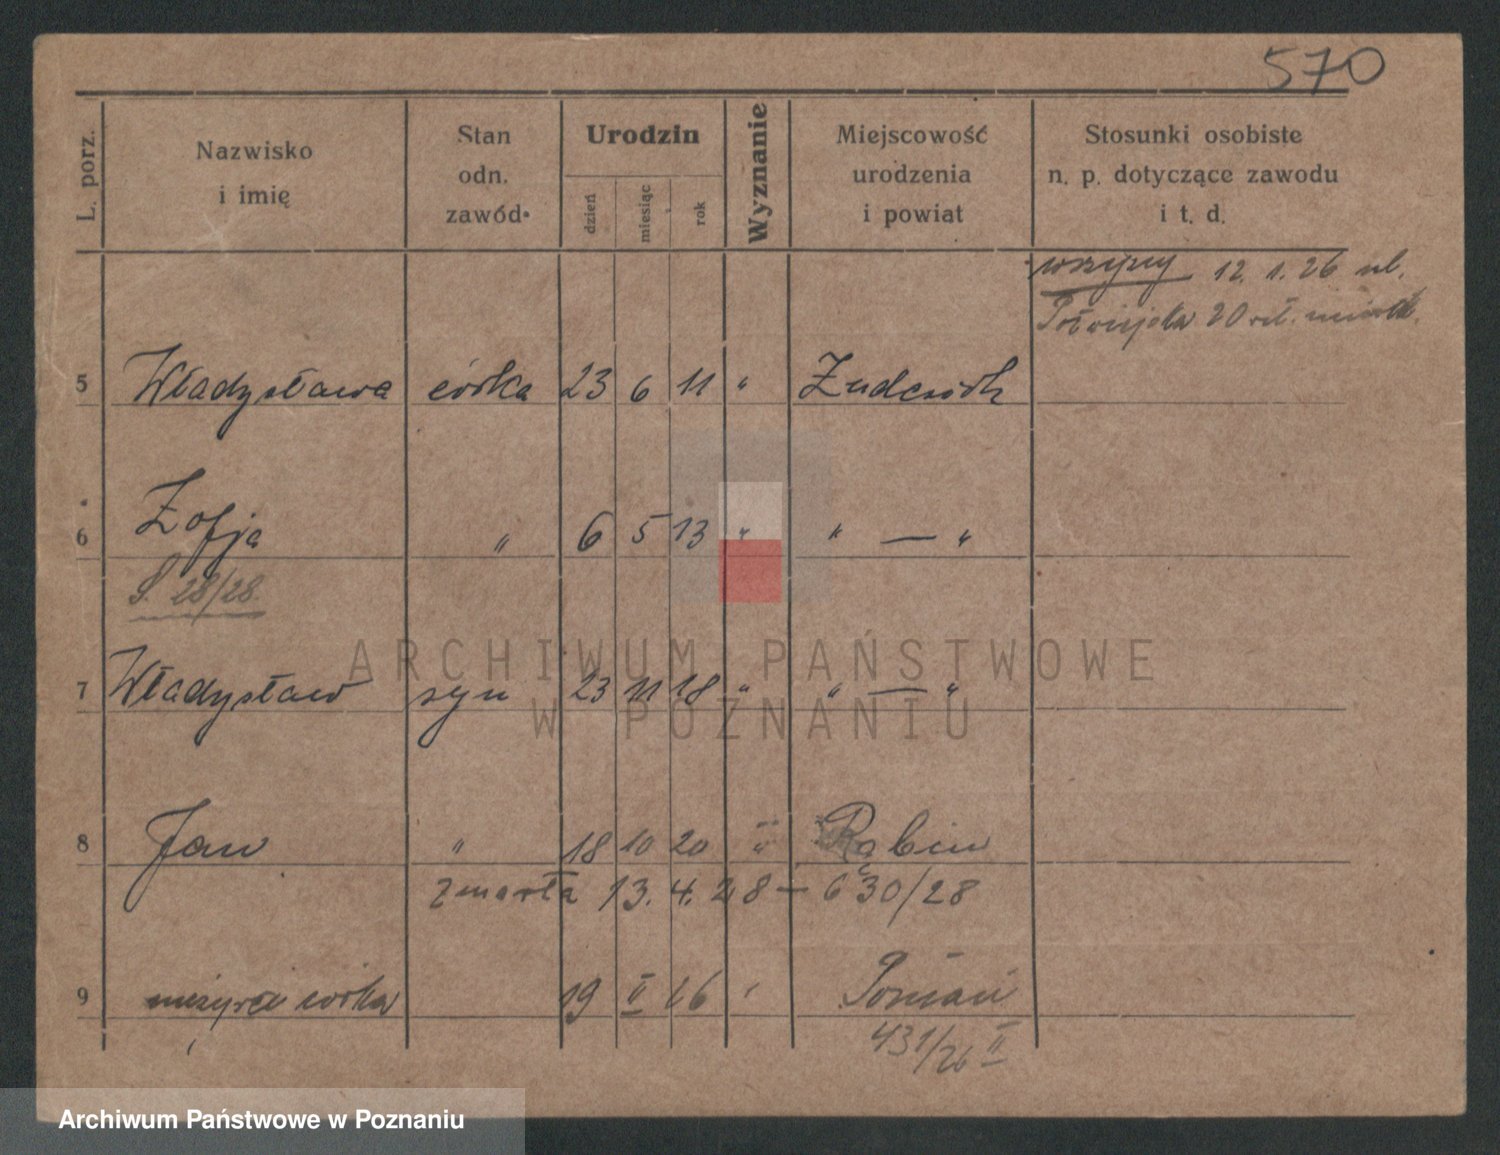 570
L. porz.
Nazwisko
i imię
Stan
odn.
zawód.
Urodzin
dzień
miesiąc
rok
Wyznanie
Miejscowość
urodzenia
i powiat
Stosunki osobiste
n. p. dotyczące zawodu
i t. d.
wszyscy 12. 1. 26 ul.
20
5 Władysława córka 23 6 11 "
6 Zofja " 6 5 13 " " — "
S. 28/28.
7 Władysław syn 23 11 18 " " — "
8 Jan " 18 10 20 " Rąbin
zmarła 13. 4. 28 — 630/28
9 nieżywa córka 19 II 26 Poznań
431/26 II
ARCHIWUM PAŃSTWOWE
W POZNANIU
Archiwum Państwowe w Poznaniu